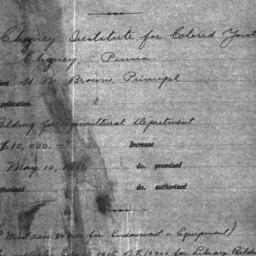 Cheyney Institute for Colored Yout
Cheyney Penna.
H. M. Brown, Principl
pplication
Building for Agricultural Department
$10,000.— Increase
May 10, do. promised
thorized do. authorized
Must raise for Endowment & Equipment)
1905 of $10000 for Library Build